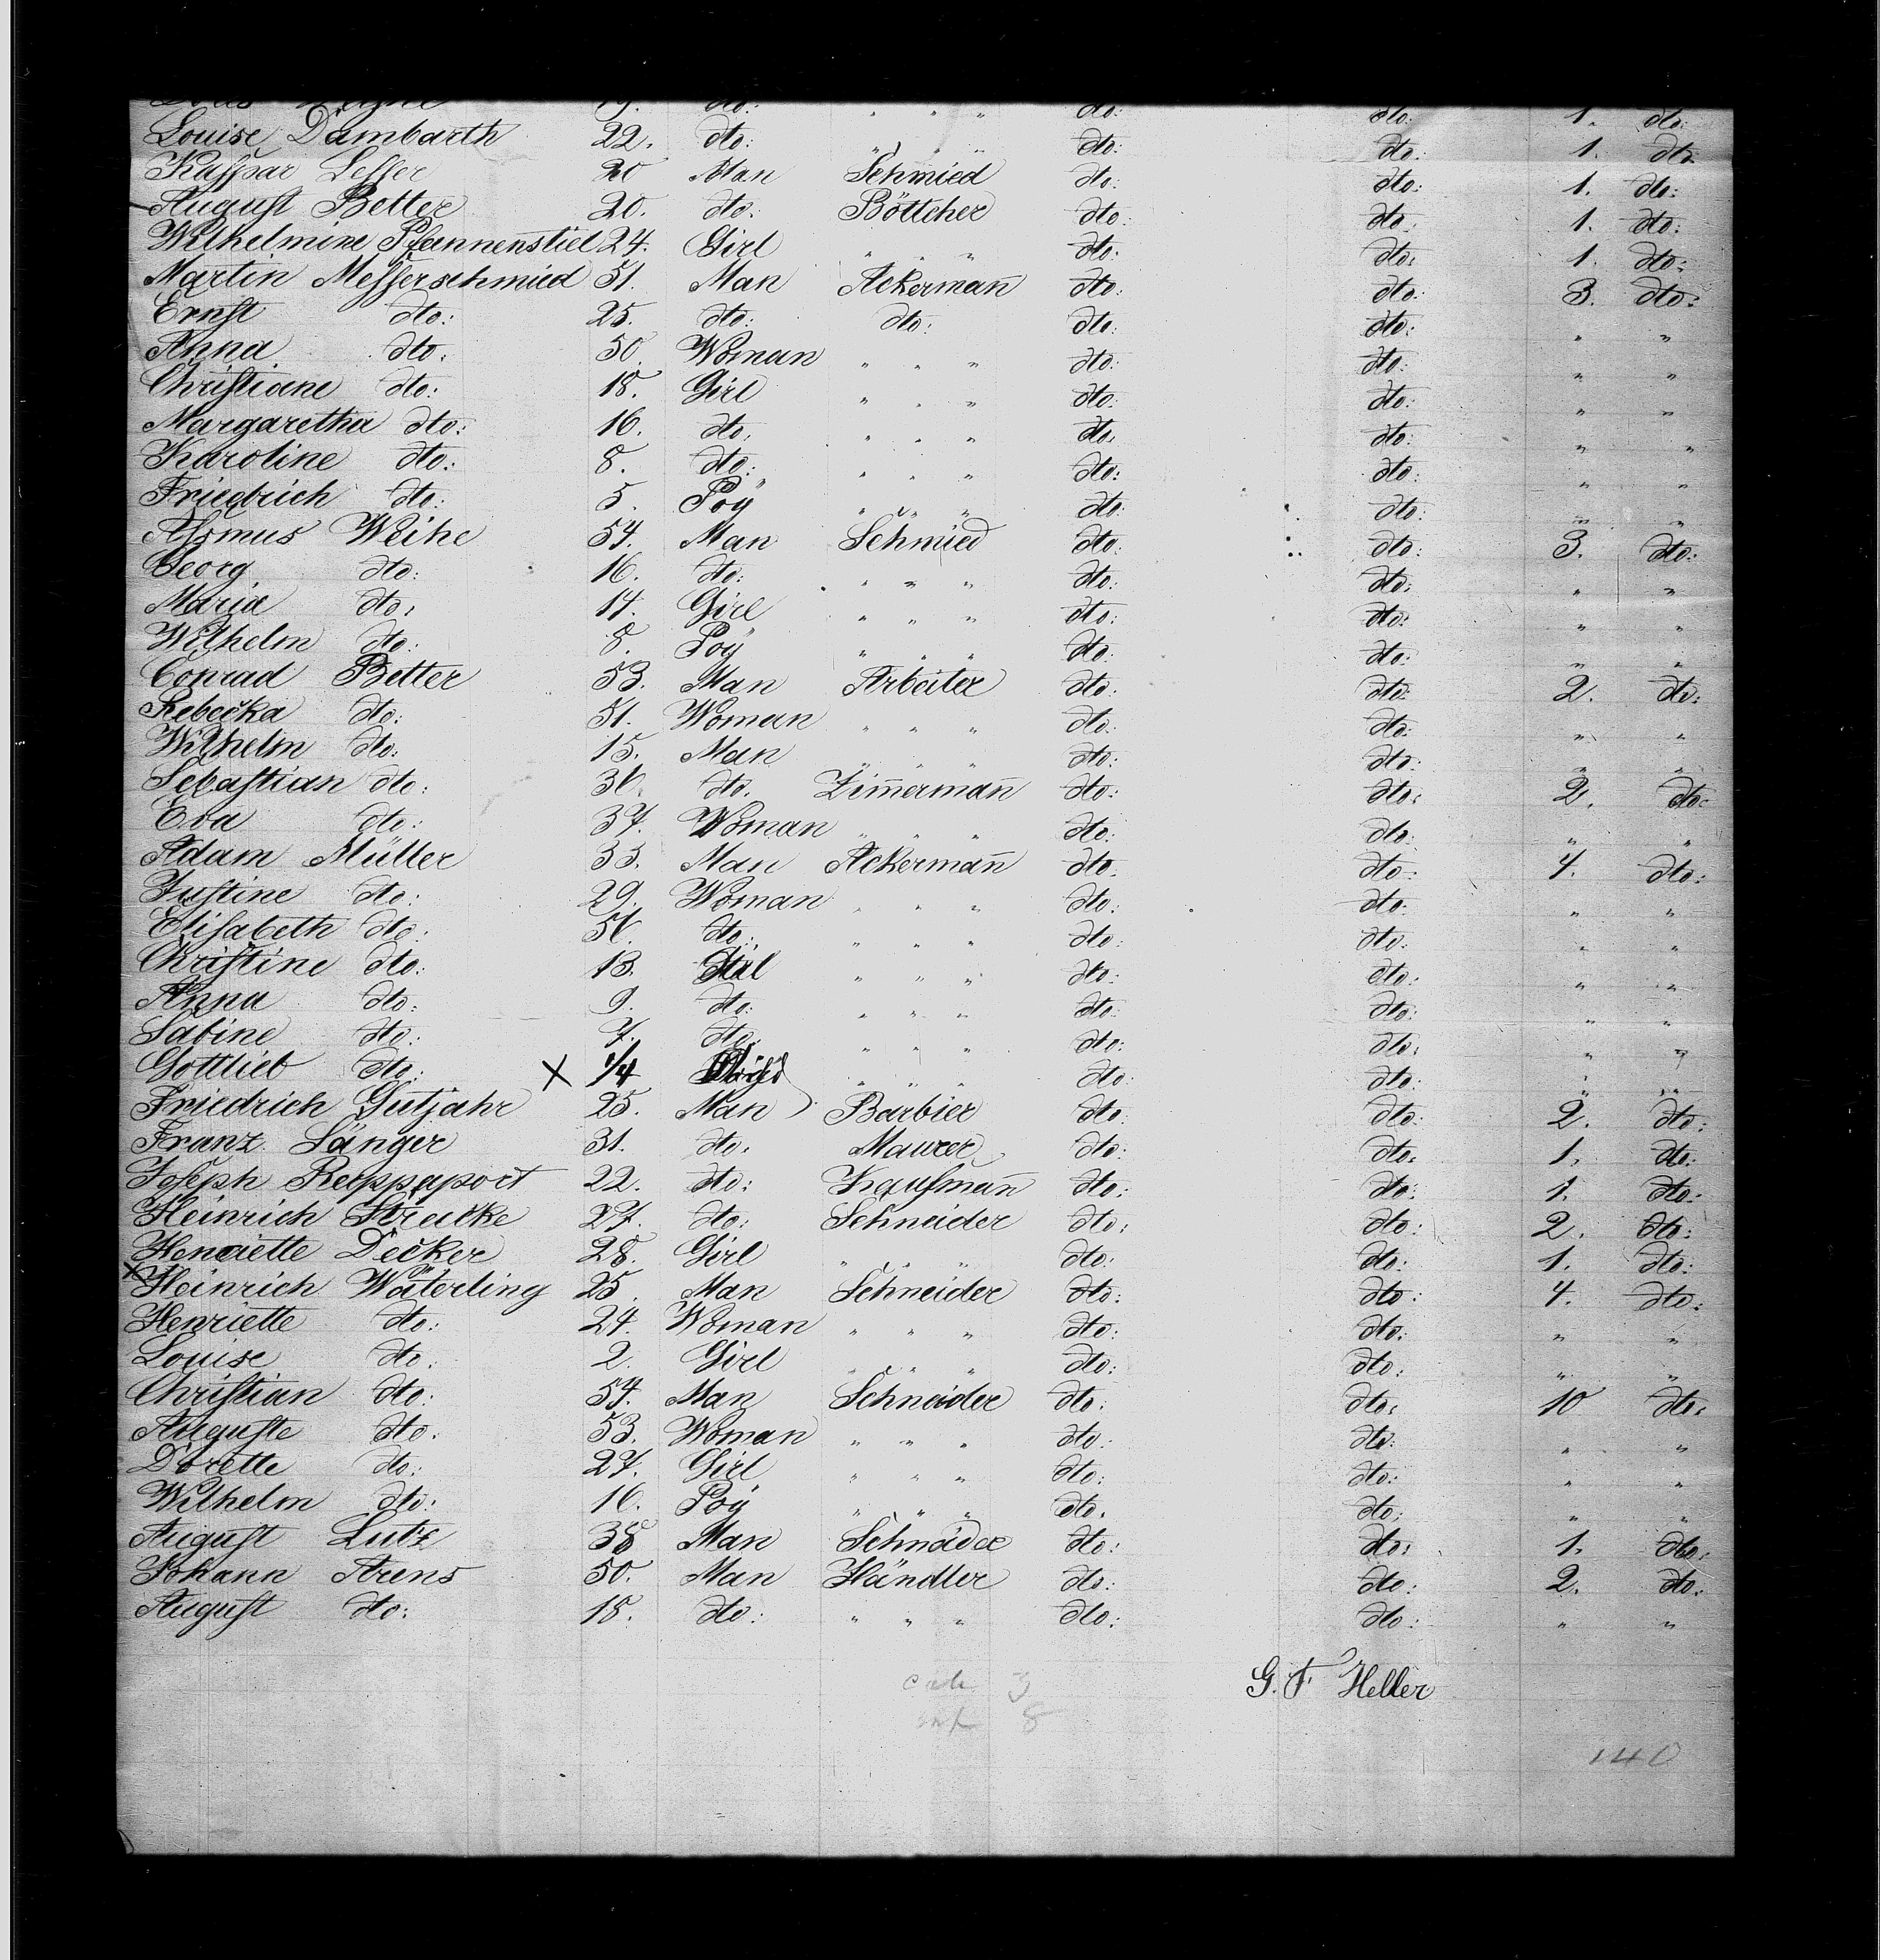 19. dto: " " " dto: dto: 1. dto:
Louise Dambarth 22. dto: " " " dto: dto: 1. dto.
Kaſſpar Leſſer 20 Man Schmied dto: dto: 1. dto:
August Better 20. dto. Böttcher dto: dto. 1. dto:
Wilhelmine Pfannenstiel 24. Girl " " " dto: dto: 1. dto:
Martin Meſſerschmied 51. Man Ackermañ dto: dto: 3. dto:
Ernſt dto: 25. dto: dto: dto: dto: " "
Anna dto. 50. Woman " " " dto: dto: " "
Chriſtiane dto: 18. Girl " " " dto: dto: " "
Margaretha dto: 16. dto. " " " dto. dto: " "
Karoline dto: 8. dto: " " " dto: dto: " "
Friedrich dto: 5. Poÿ " " " dto: dto: " "
Aſsmus Weihe 54. Man Schmied dto: dto: 3. dto:
Georg dto: 16. dto: " " " dto: dto: " "
Maria dto. 14. Girl " " " dto: dto: " "
Wilhelm dto: 8. Poÿ " " " dto: dto: " "
Conrad Better 53. Man Arbeiter dto: dto: 2. dto:
Rebecka dto: 51. Woman " " " dto: dto: " "
Wilhelm dto: 15. Man " " " dto: dto: " "
Sebaſtian dto: 36. dto. Zim̃ermañ dto: dto: 2. dto:
Eva dto: 37. Woman " " " dto: dto: " "
Adam Müller 33. Man Ackermañ dto. dto: 4. dto:
Juſtine dto: 29. Woman " " " dto: dto: " "
Eliſabeth dto: 56. dto: " " " dto: dto: " "
Chriſtine dto: 13. Girl " " " dto: dto: " "
Anna dto: 9. dto: " " " dto: dto: " "
Sabine dto: 7. dto: " " " dto: dto: " "
Gottlieb dto: X 1/4 " " " dto: dto: " "
Friedrich Gutjahr 25. Man Barbier dto: dto: 2. dto:
Franz Sänger 31. dto. Maurer dto: dto: 1. dto:
Joſeph Rappaport 22. dto: Kaufmañ dto: dto: 1. dto:
Heinrich Strecke 27. dto: Schneider dto: dto: 2. dto:
Henriette Decker 28. Girl " " " dto: dto: 1. dto:
X Heinrich Wäterling 25. Man Schneider dto: dto: 4. dto:
Henriette dto: 24. Woman " " " dto: dto: " "
Louise dto. 2. Girl " " " dto: dto: " "
Chriſtian dto: 54. Man Schneider dto: dto: 10 dto:
Auguſte dto. 53. Woman " " " dto: dto: " "
Dorette dto: 27. Girl " " " dto: dto: " "
Wilhelm dto: 16. Poÿ " " " dto. dto: " "
Auguſt Lutz 38 Man Schneider dto: dto: 1. dto:
Johann Arens 50. Man Händler dto: dto: 2. dto.
Auguſt dto: 18. dto: " " " dto: dto: " "
G. F Heller
3
8
140